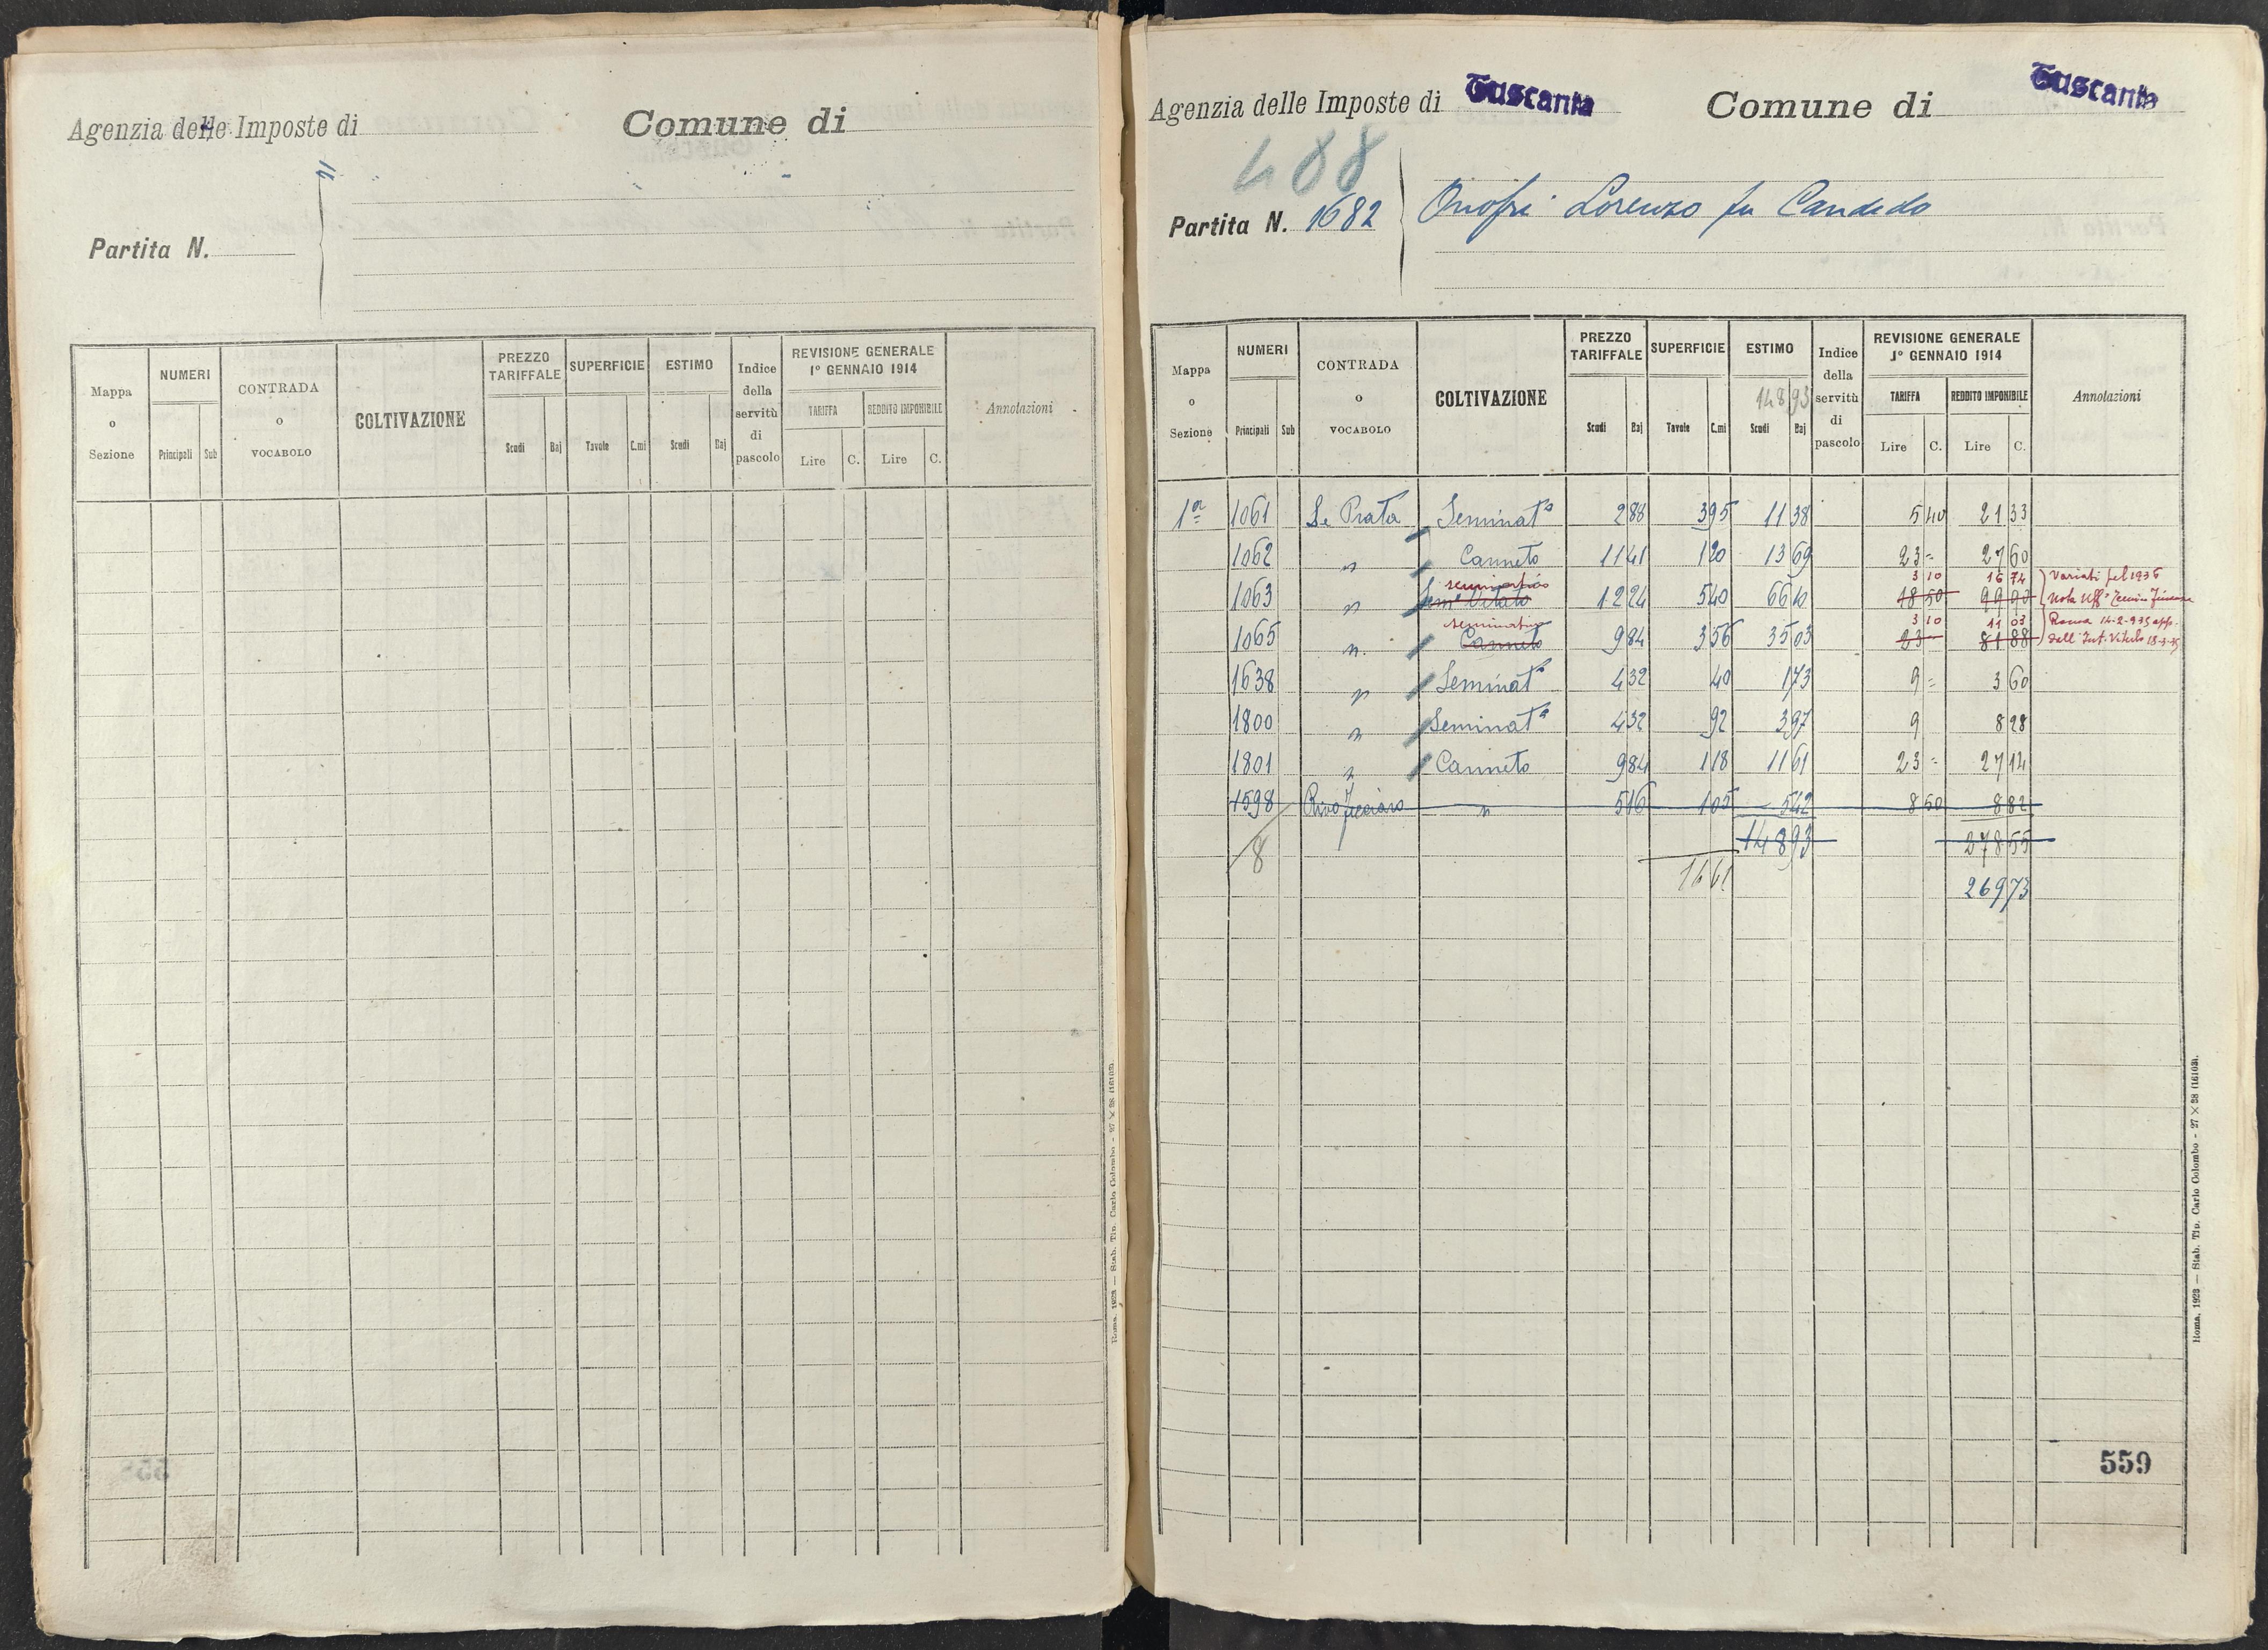 Agenzia delle Imposte di
Comune di
Partita N.
Mappa o Sezione
NUMERI
Principali Sub
CONTRADA o VOCABOLO
COLTIVAZIONE
PREZZO TARIFFALE
Scudi Baj
SUPERFICIE
Tavole C.mi
ESTIMO
Scudi Baj
Indice della servitù di pascolo
REVISIONE GENERALE
1° GENNAIO 1914
TARIFFA REDDITO IMPONIBILE
Lire C. Lire C.
Annotazioni
Roma, 1923 — Stab. Tip. Carlo Colombo - 27 × 38 (16103).
Agenzia delle Imposte di Tuscania
Comune di Tuscania
488
Partita N. 1682 Onofri Lorenzo fu Candido
Mappa o Sezione
NUMERI
Principali Sub
CONTRADA o VOCABOLO
COLTIVAZIONE
PREZZO TARIFFALE
Scudi Baj
SUPERFICIE
Tavole C.mi
ESTIMO
148 93
Scudi Baj
Indice della servitù di pascolo
REVISIONE GENERALE
1° GENNAIO 1914
TARIFFA REDDITO IMPONIBILE
Lire C. Lire C.
Annotazioni
1ª 1061 Le Prata Seminat° 2 88 3 95 11 38 5 40 21 33
1062 " Canneto 11 41 1 20 13 69 23 = 27 60
seminativo 3 10 16 74 Variati pel 1936
1063 " Sem° Vitato 12 24 5 40 66 10 18 50 99 90 Nota Uff°
seminativo 3 10 11 03 Roma 14-2-935 app.
1065 " Canneto 9 84 3 56 35 03 23 - 81 88 dall'Int. Viterbo 18-3-35
1638 " Seminat° 4 32 40 1 73 9 = 3 60
1800 " Seminat° 4 32 92 3 97 9 8 28
1801 " Canneto 9 84 1 18 11 61 23 = 27 14
1598 " 5 16 1 05 5 42 8 50 8 82
148 93 278 55
8 16 61
269 73
559
Roma, 1923 — Stab. Tip. Carlo Colombo - 27 × 38 (16103).